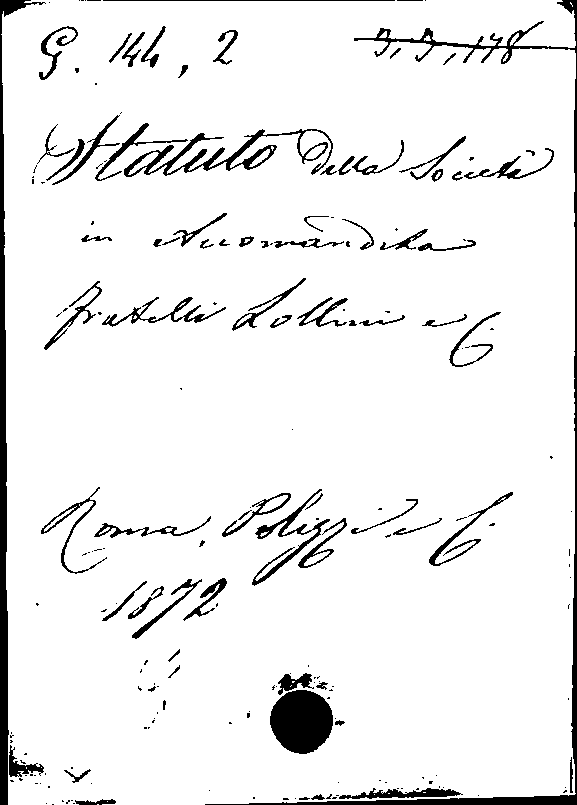 G. 144, 2 3, 3, 178
Statuto della Società
in Accomandita
fratelli Lollini e C.
Roma, Polizzi e C.
1872